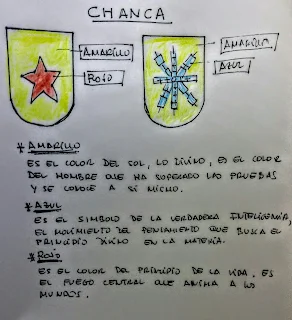 CHANCA
AMARILLO
ROJO
AMARILLO
AZUL
* AMARILLO
ES EL COLOR DEL SOL, LO DIVINO, ES EL COLOR
DEL HOMBRE QUE HA SUPERADO LAS PRUEBAS
Y SE CONOCE A SÍ MISMO.
* AZUL
ES EL SIMBOLO DE LA VERDADERA INTELIGENCIA,
EL MOVIMIENTO DEL PENSAMIENTO QUE BUSCA EL
PRINCIPIO DIVINO EN LA MATERIA.
* ROJO
ES EL COLOR DEL PRINCIPIO DE LA VIDA. ES
EL FUEGO CENTRAL QUE ANIMA A LOS
MUNDOS.